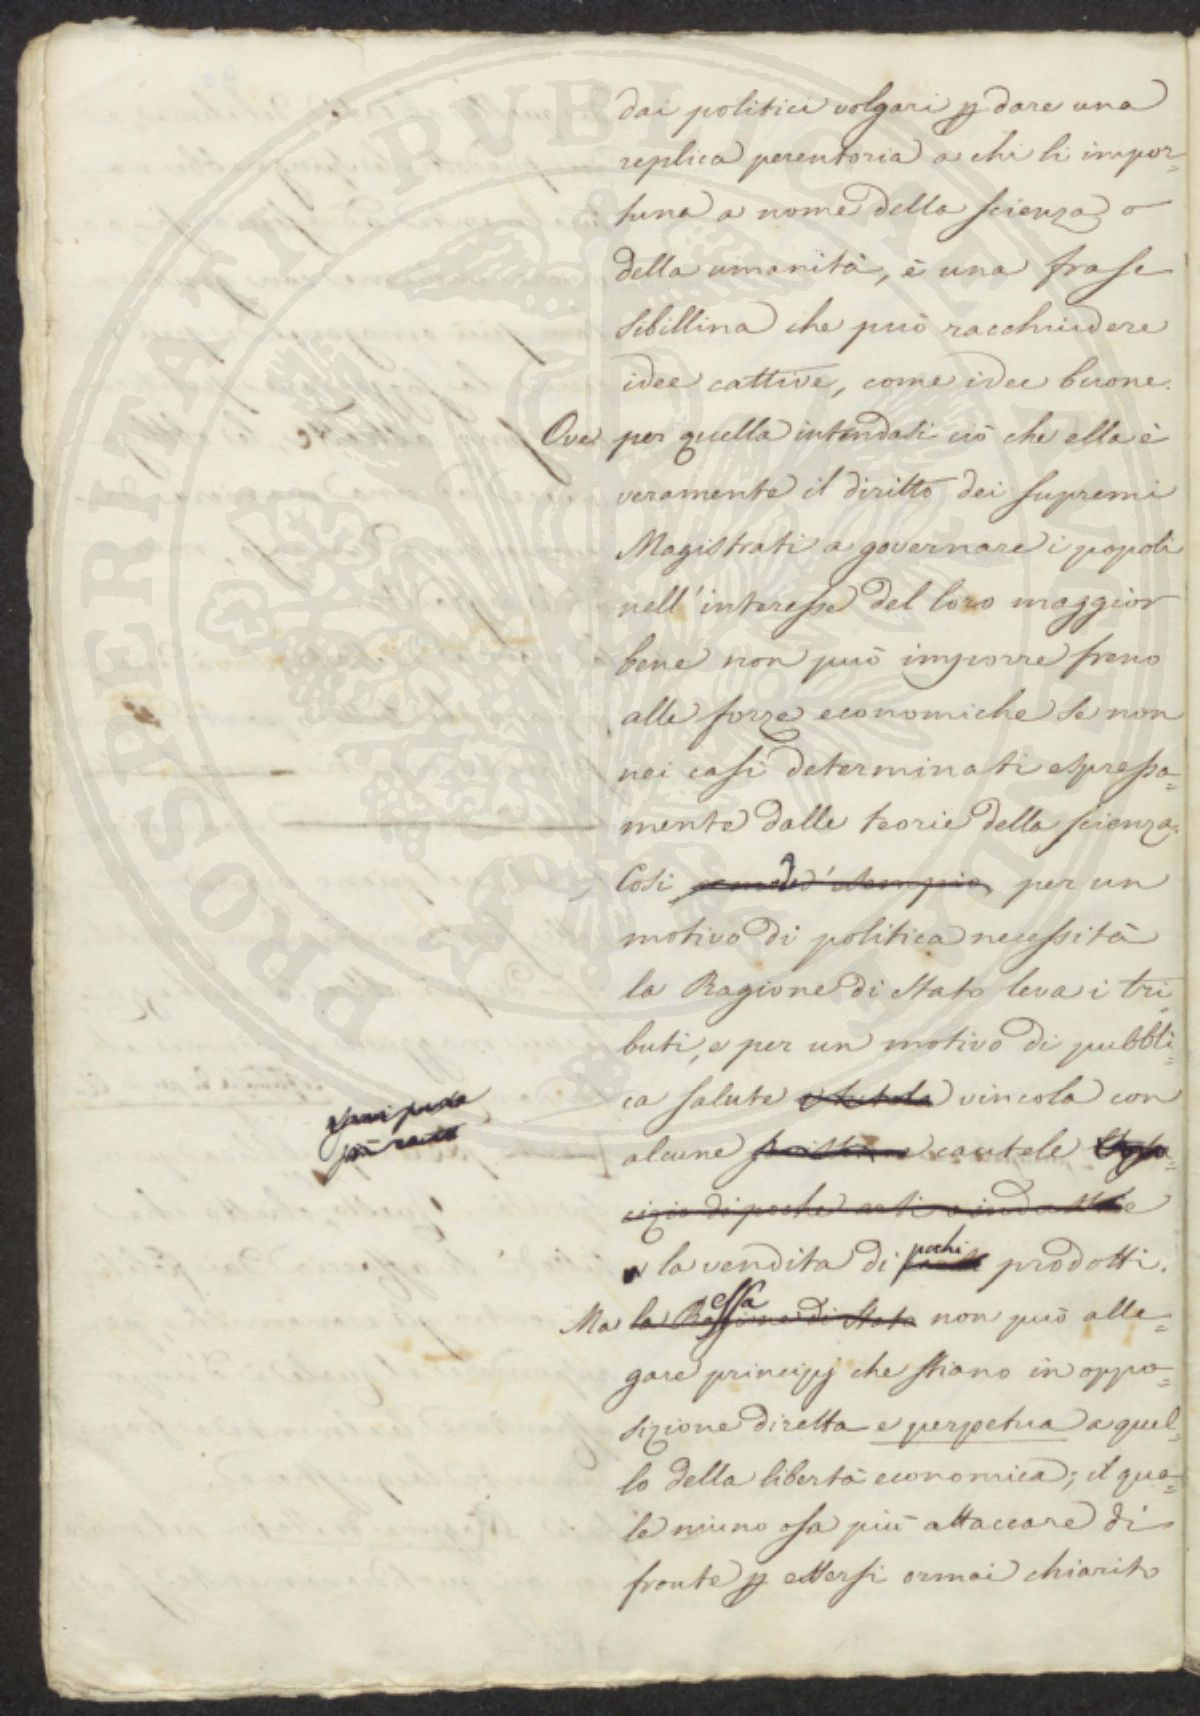 dai politici volgari p dare una
replica perentoria a chi li impor=
tuna a nome della scienza o
della umanità, è una frase
sibillina che può racchiudere
idee cattive, come idee buone.
Ove per quella intendasi ciò che ella è
veramente il diritto dei supremi
Magistrati a governare i popoli
nell'interesse del loro maggior
bene non può imporre freno
alle forze economiche se non
nei casi determinati espressa=
mente dalle teorie della scienza.
Così a modo d'esempio, per un
motivo di politica necessità
la Ragione di Stato leva i tri=
buti, e per un motivo di pubbli=
ca salute e tutela vincola con
alcune cautele
cizio di poche arti o industrie
la vendita di pochi prodotti.
Ma la Ragione di Stato essa non può alle=
gare principj che stiano in oppo=
sizione diretta e perpetua a quel=
lo della libertà economica; il qua=
le niuno osa più attaccare di
fronte p essersi ormai chiarito
PROSPERITATI PVBLICAE AVGENDAE